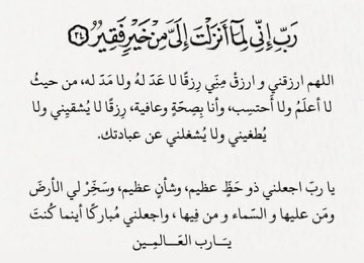 رَبِّ إِنِّي لِمَا أَنزَلْتَ إِلَيَّ مِنْ خَيْرٍ فَقِيرٌ ٢٤
اللهم ارزقني و ارزقْ مِنِّي رِزقًا لا عَد لهُ ولا مَدَ له، من حيثُ
لا أعلَمُ ولا أحتسِب، وأنا بِصِحَةٍ وعافية، رزقًا لا يُشقيِني ولا
يُطغيني ولا يُشغلني عن عبادتك.
يا ربّ اجعلني ذو حَظٍّ عظيم، وشأنٍ عظيم، وسَخِّرْ لي الأرضَ
ومَن عليها و السّماء و من فِيها ، واجعلني مُباركًا أينما كُنتَ
يَارب العَالمين